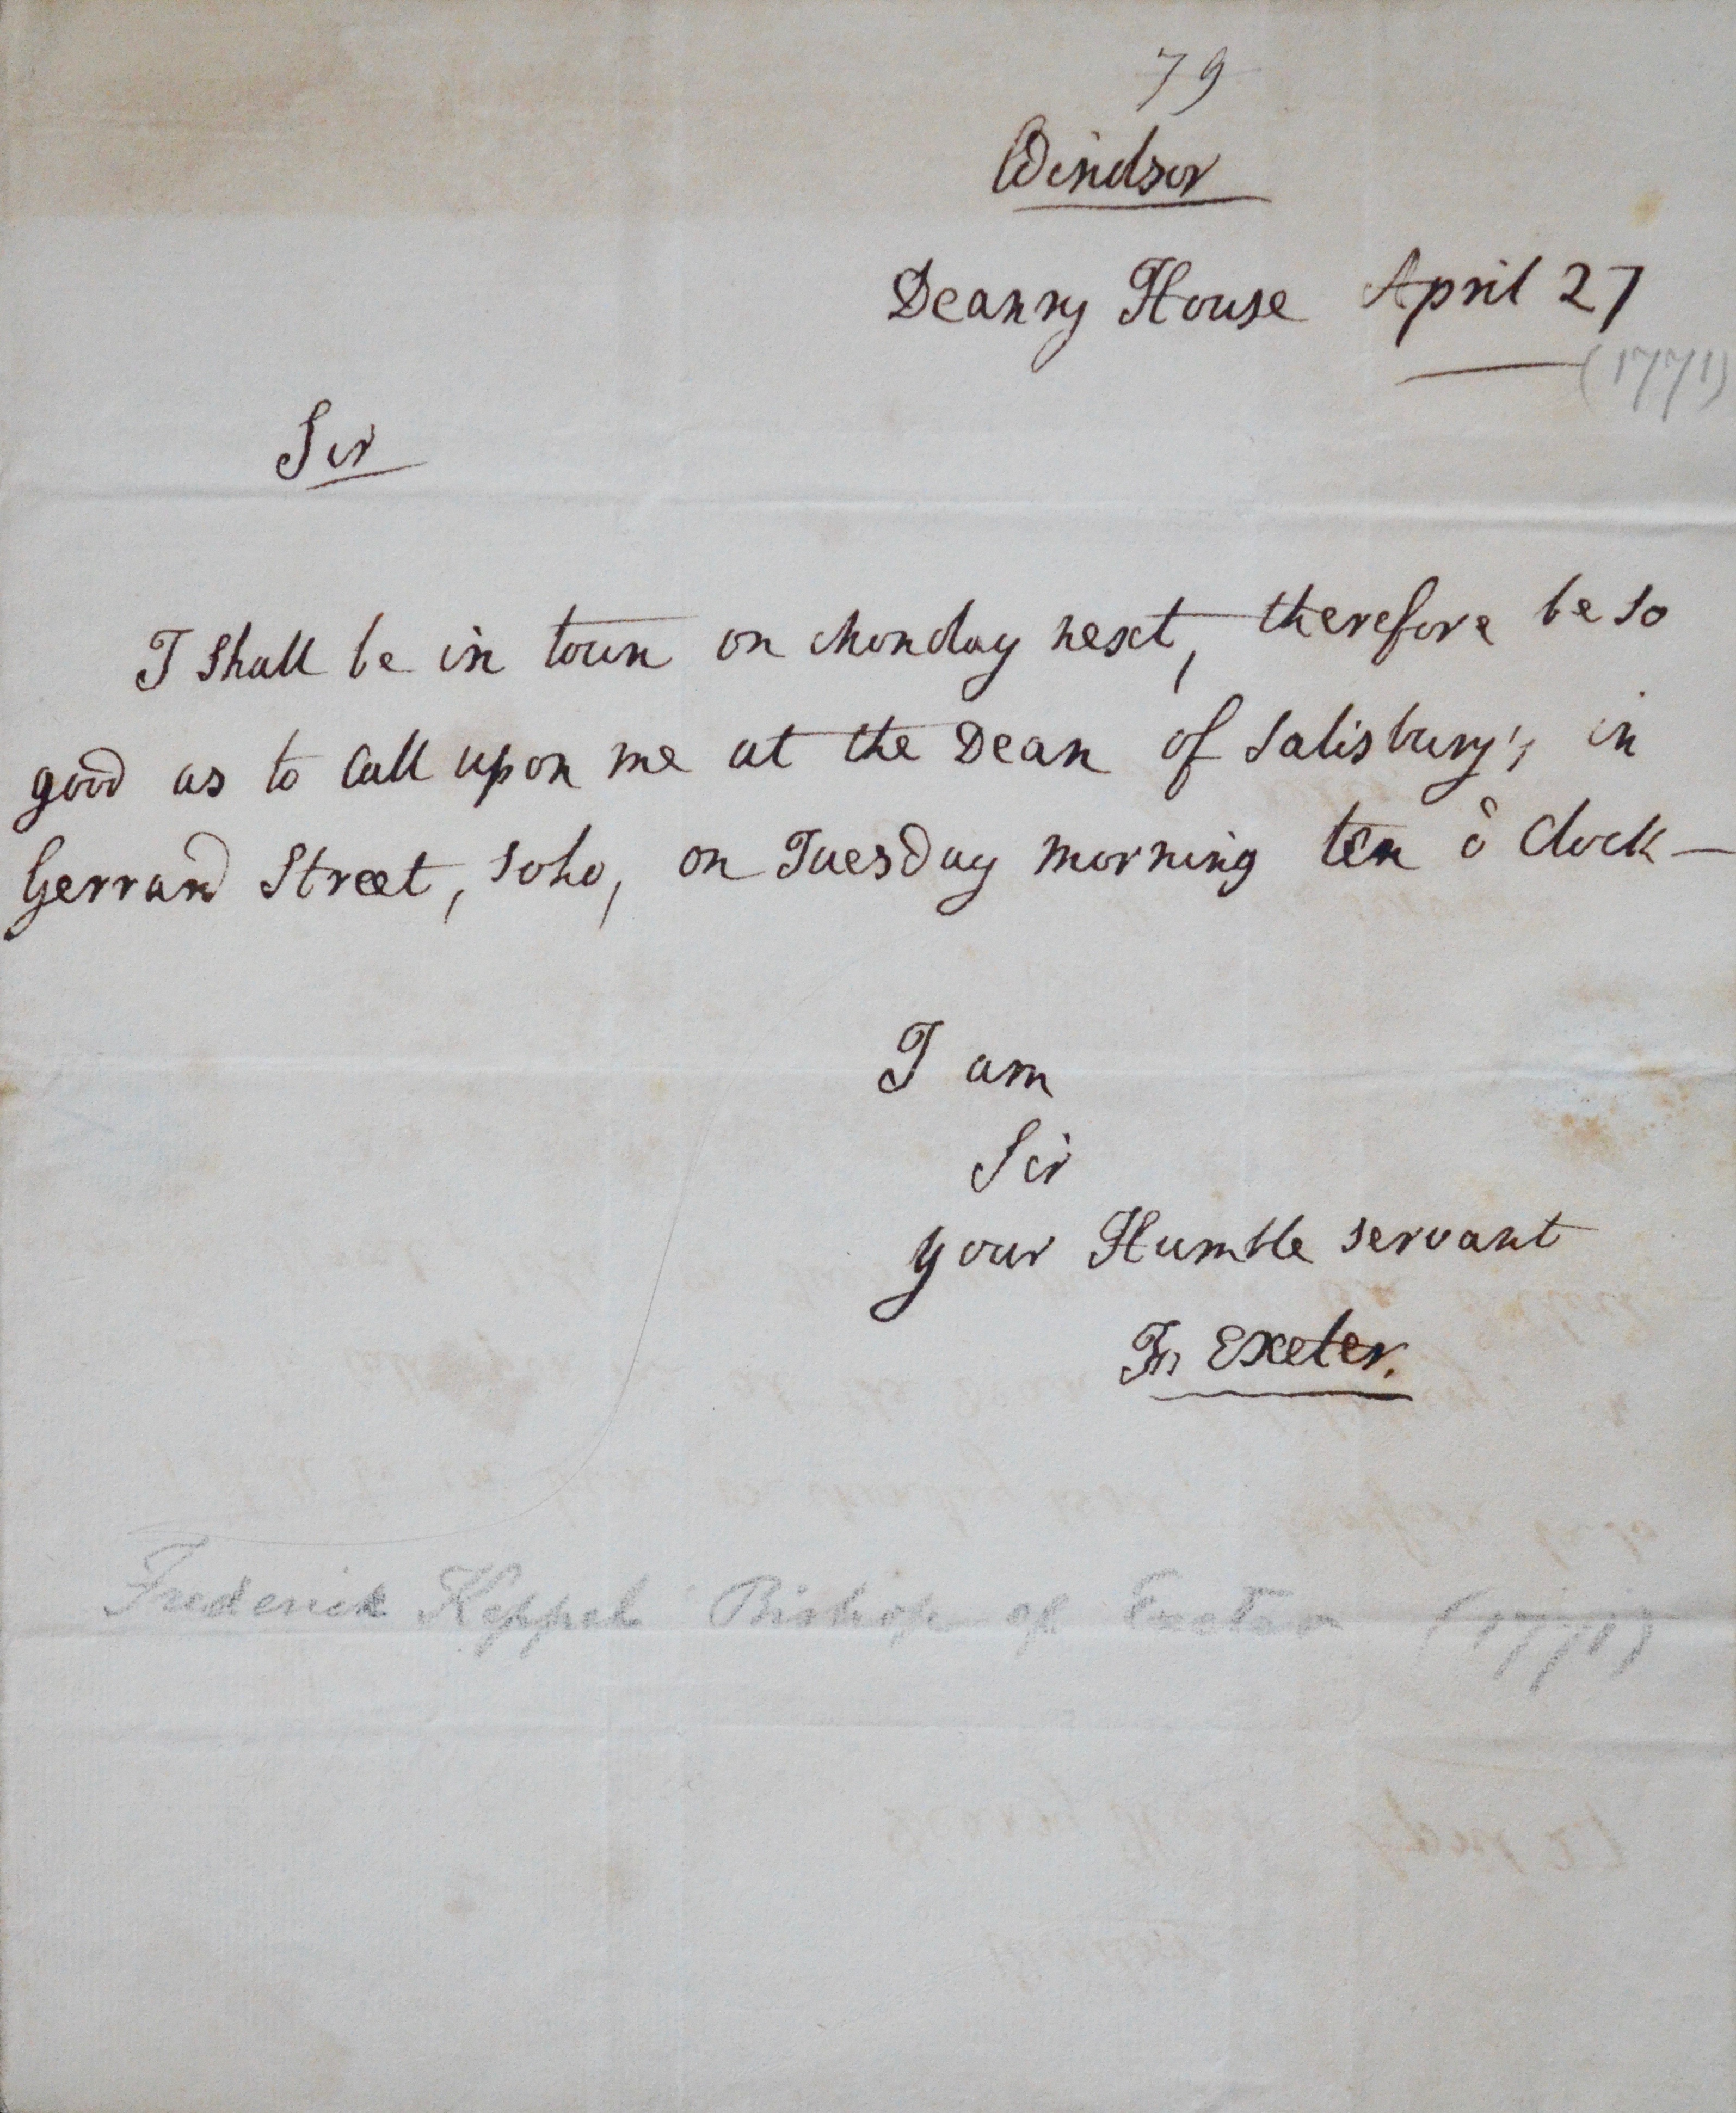 79
Windsor
Deanry House April 27
(1771)
Sir
I shall be in town on Monday next, therefore be so
good as to Call upon me at the Dean of Salisbury's in
Gerrard Street, Soho, on Tuesday morning ten ô Clock—
I am
Sir
your Humble servant
Fr Exeter.
Frederick Keppel Bishop of Exeter (1771)